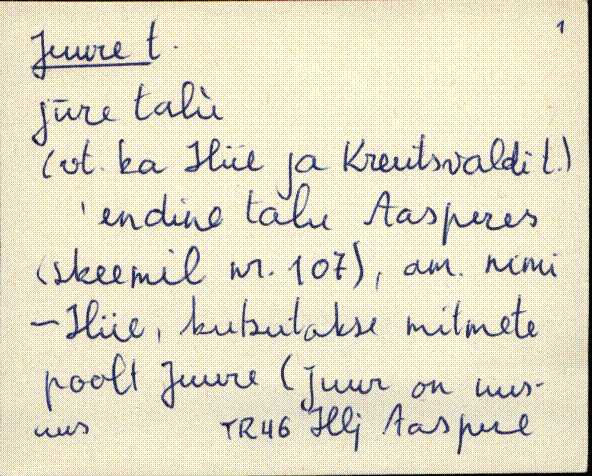 1
Juure t.
jūre talù
(vt. ka Hiie ja Kreutsvaldi t.)
'endine talu Aasperes
(skeemil nr. 107), am. nimi
– Hiie, kutsutakse mitmete
poolt Juure (juur on uus-
uus TR46 Hlj Aaspere